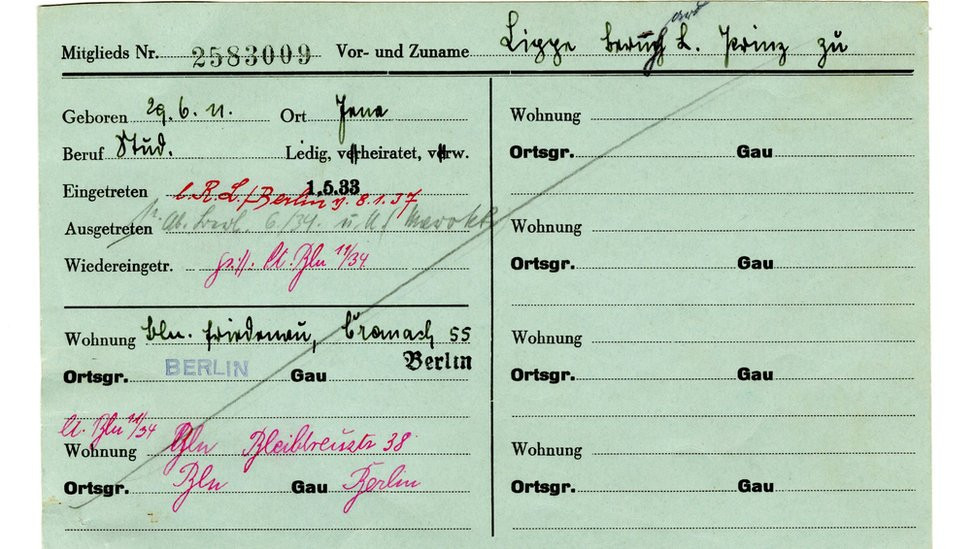 Mitglieds Nr. 2583009 Vor- und Zuname Lippe Bernh L. Prinz zu
Geboren 29.6.11. Ort Jena
Beruf Stud. Ledig, verheiratet, verw.
Eingetreten 1.5.33
l. R.L./Berlin v. 8.1.37
Ausgetreten 6./34. u.
Wiedereingetr. lt. Bln 11/34
Wohnung Bln. Friedenau, Cranach 55
Ortsgr. BERLIN Gau Berlin
lt. Bln 11/34
Wohnung Bln Bleibtreustr 38
Ortsgr. Bln Gau Berlin
Wohnung
Ortsgr. Gau
Wohnung
Ortsgr. Gau
Wohnung
Ortsgr. Gau
Wohnung
Ortsgr. Gau